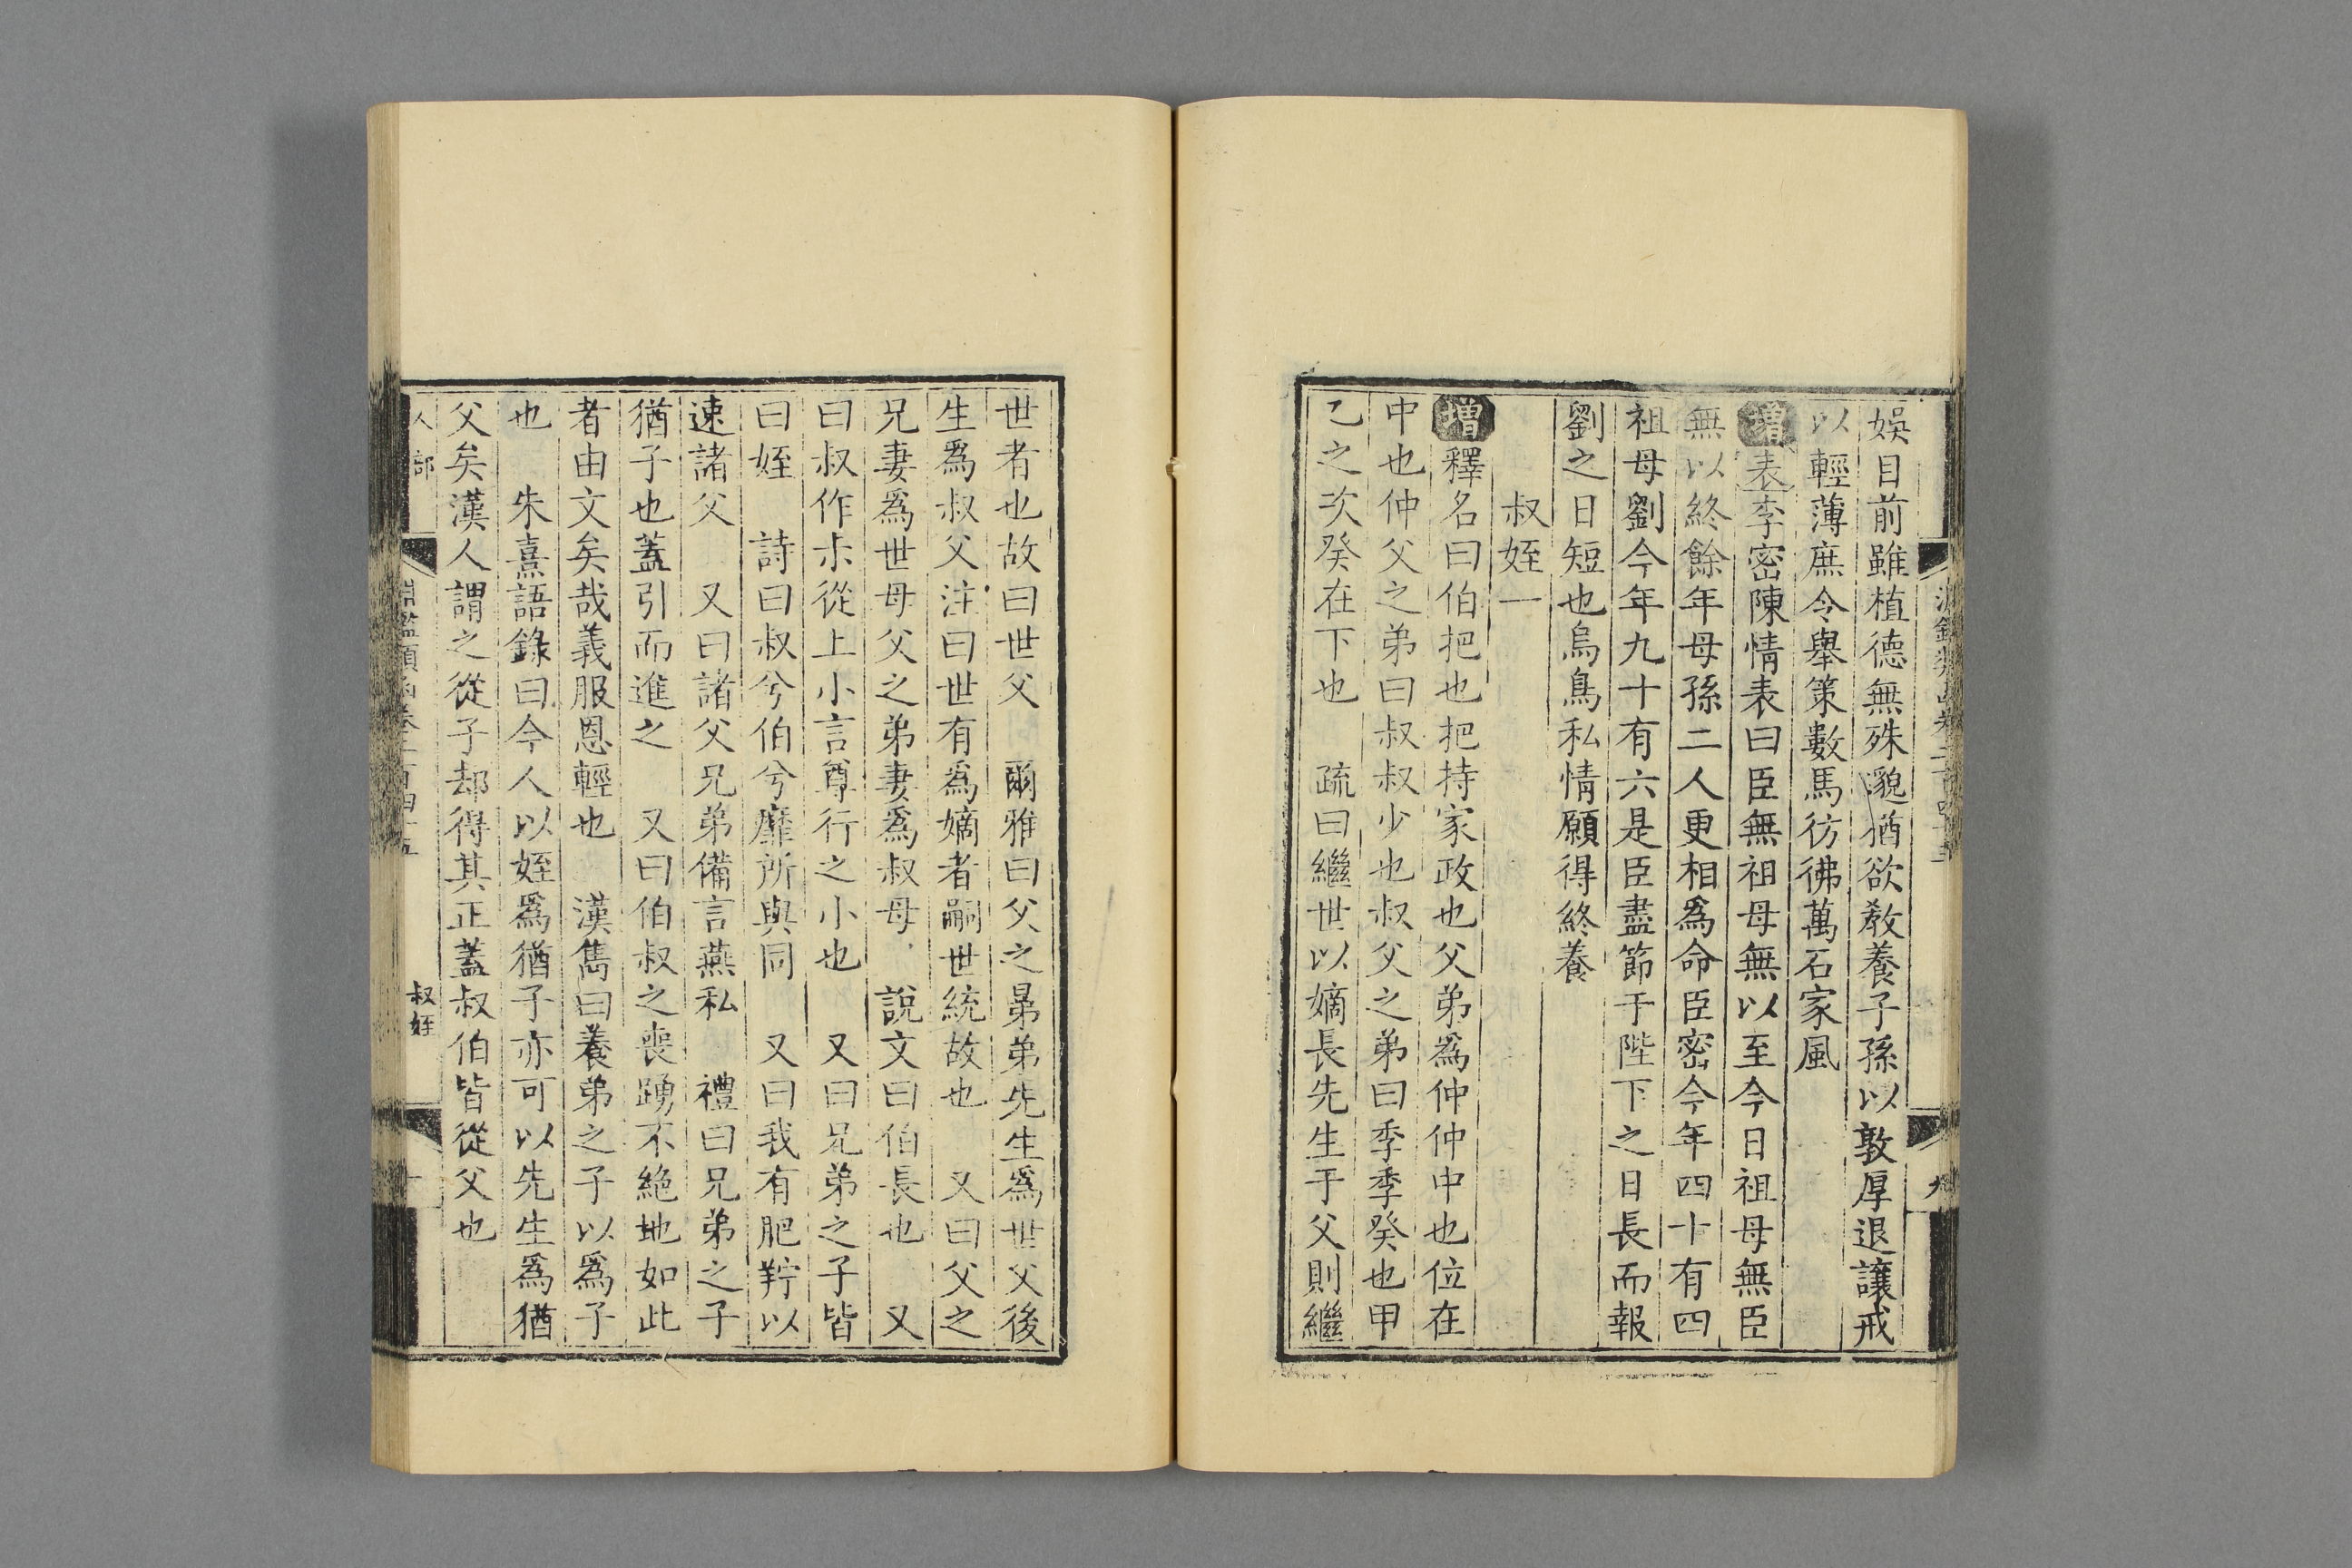 娛目前雖植德無殊邈猶欲教養子孫以敦厚退讓戒
以輕薄庶令舉策數馬彷彿萬石家風
增表李密陳情表曰臣無祖母無以至今日祖母無臣
無以終餘年母孫二人更相爲命臣密今年四十有四
祖母劉今年九十有六是臣盡節于陛下之日長而報
劉之日短也烏鳥私情願得終養
叔姪一
增釋名曰伯把也把持家政也父弟爲仲仲中也位在
中也仲父之弟曰叔叔少也叔父之弟曰季季癸也甲
乙之次癸在下也　疏曰繼世以嫡長先生于父則繼
世者也故曰世父　爾雅曰父之晜弟先生爲世父後
生爲叔父注曰世有爲嫡者嗣世統故也　又曰父之
兄妻爲世母父之弟妻爲叔母　說文曰伯長也　又
曰叔作尗從上小言尊行之小也　又曰兄弟之子皆
曰姪　詩曰叔兮伯兮靡所與同　又曰我有肥羜以
速諸父　又曰諸父兄弟備言燕私　禮曰兄弟之子
猶子也蓋引而進之　又曰伯叔之喪踴不絶地如此
者由文矣哉義服恩輕也　漢雋曰養弟之子以爲子
也　朱熹語錄曰今人以姪爲猶子亦可以先生爲猶
父矣漢人謂之從子却得其正蓋叔伯皆從父也
人部
淵鑑類函卷二百四十五
叔姪